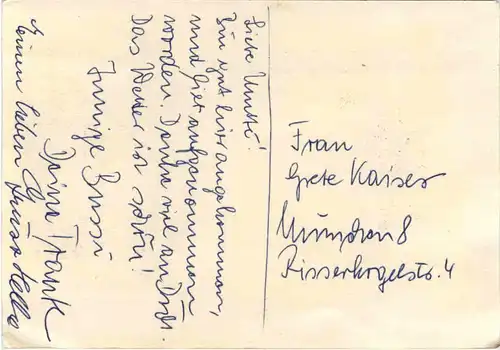 Liebe Mutti!
Bin gut hier angekommen,
und gut aufgenommen
worden. Denke viel an Dich.
Das Wetter ist schön!
Innige Bussi
Deine Frank
einen lieben Gruss
Frau
Grete Kaiser
München 8
Risserkogelstr. 4